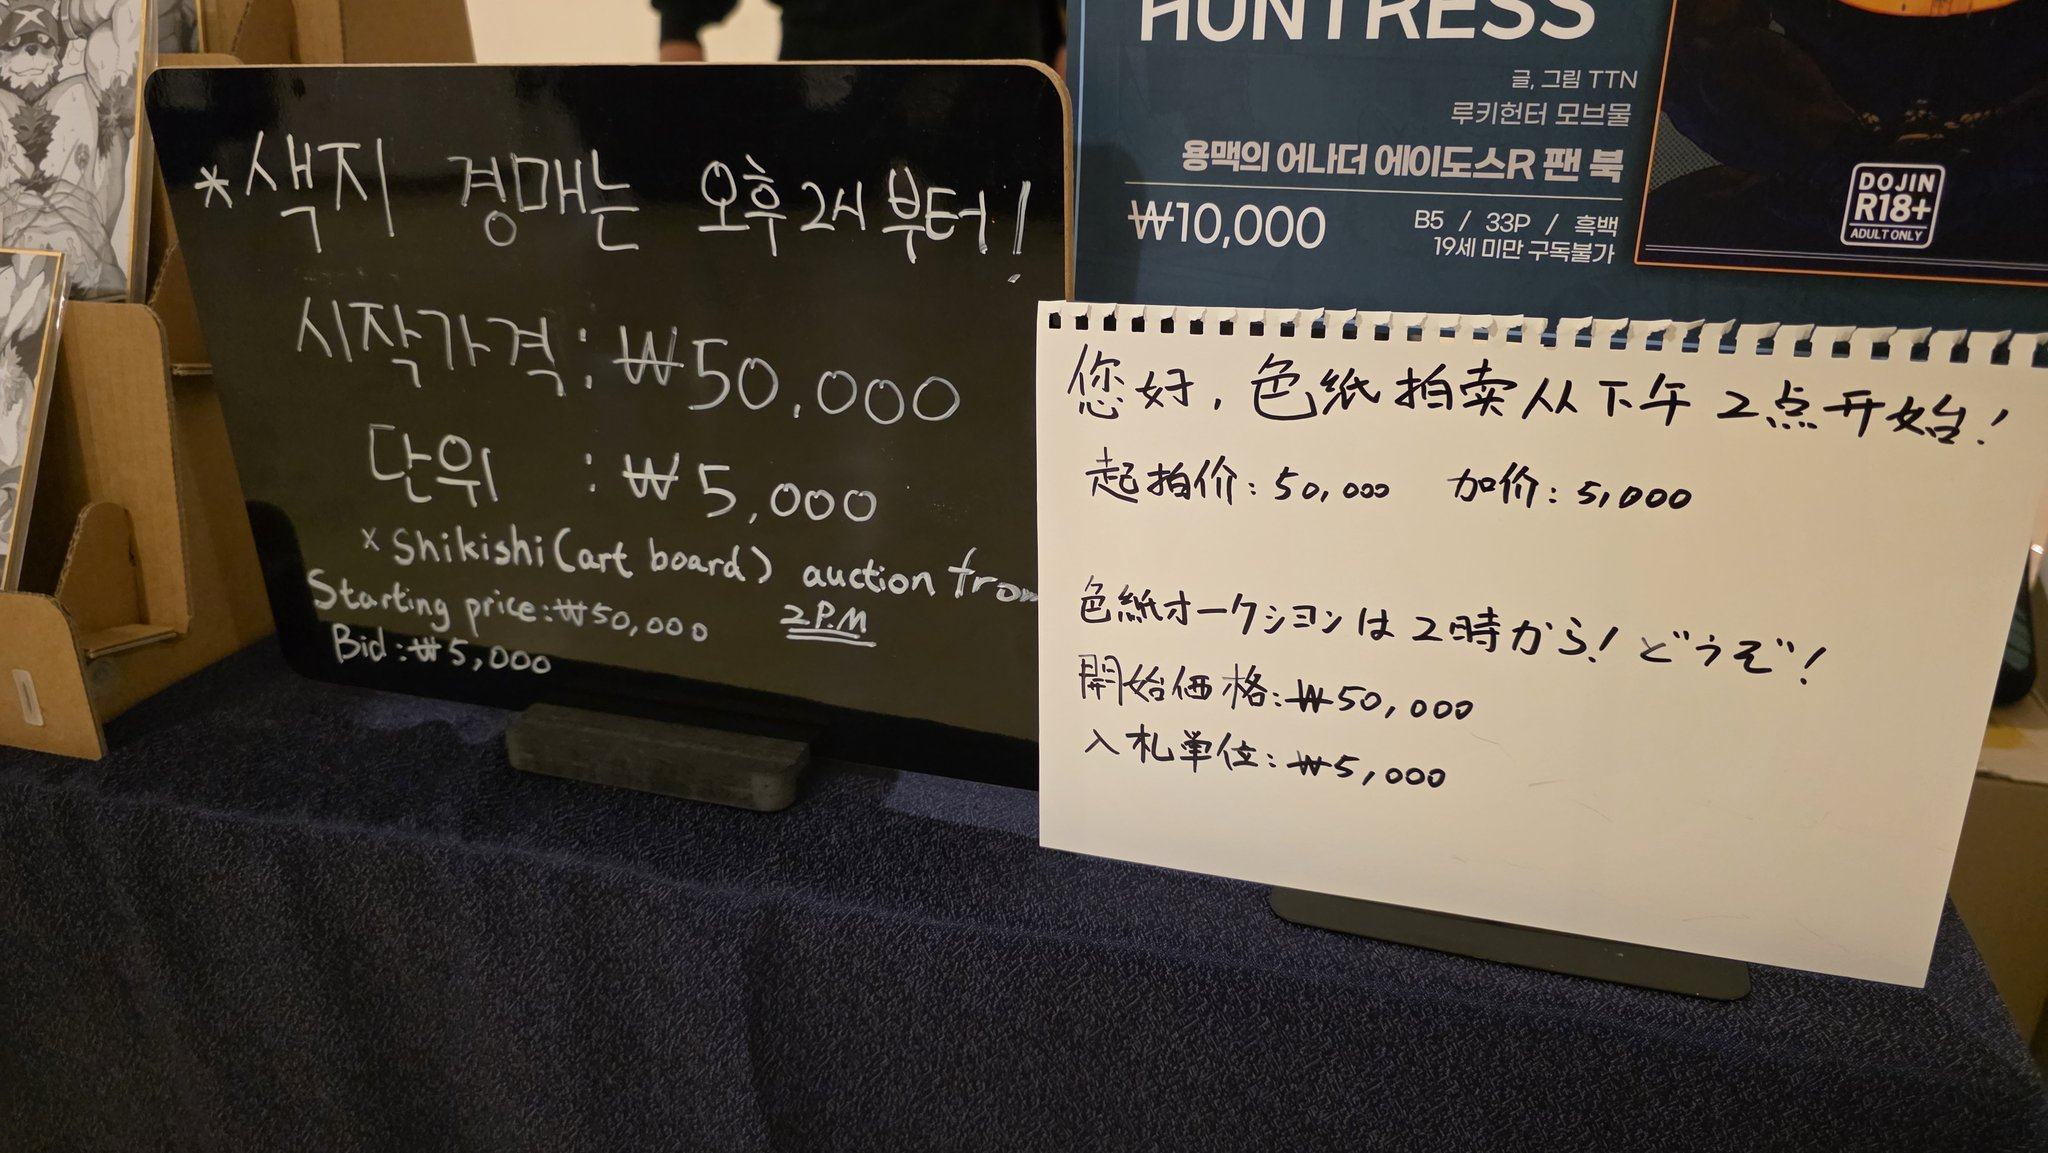 *색지 경매는 오후2시부터!
시작가격: ₩50,000
단위 : ₩5,000
x Shikishi(art board) auction from
2P.M
Starting price:₩50,000
Bid:₩5,000
HUNTRESS
글, 그림 TTN
루키헌터 모브물
용맥의 어나더 에이도스R 팬 북
₩10,000
B5 / 33P / 흑백
19세 미만 구독불가
DOJIN
R18+
ADULT ONLY
您好, 色紙拍卖从下午2点开始!
起拍价:50,000 加价:5,000
色紙オークションは2時から!どうぞ!
開始価格:₩50,000
入札単位:₩5,000